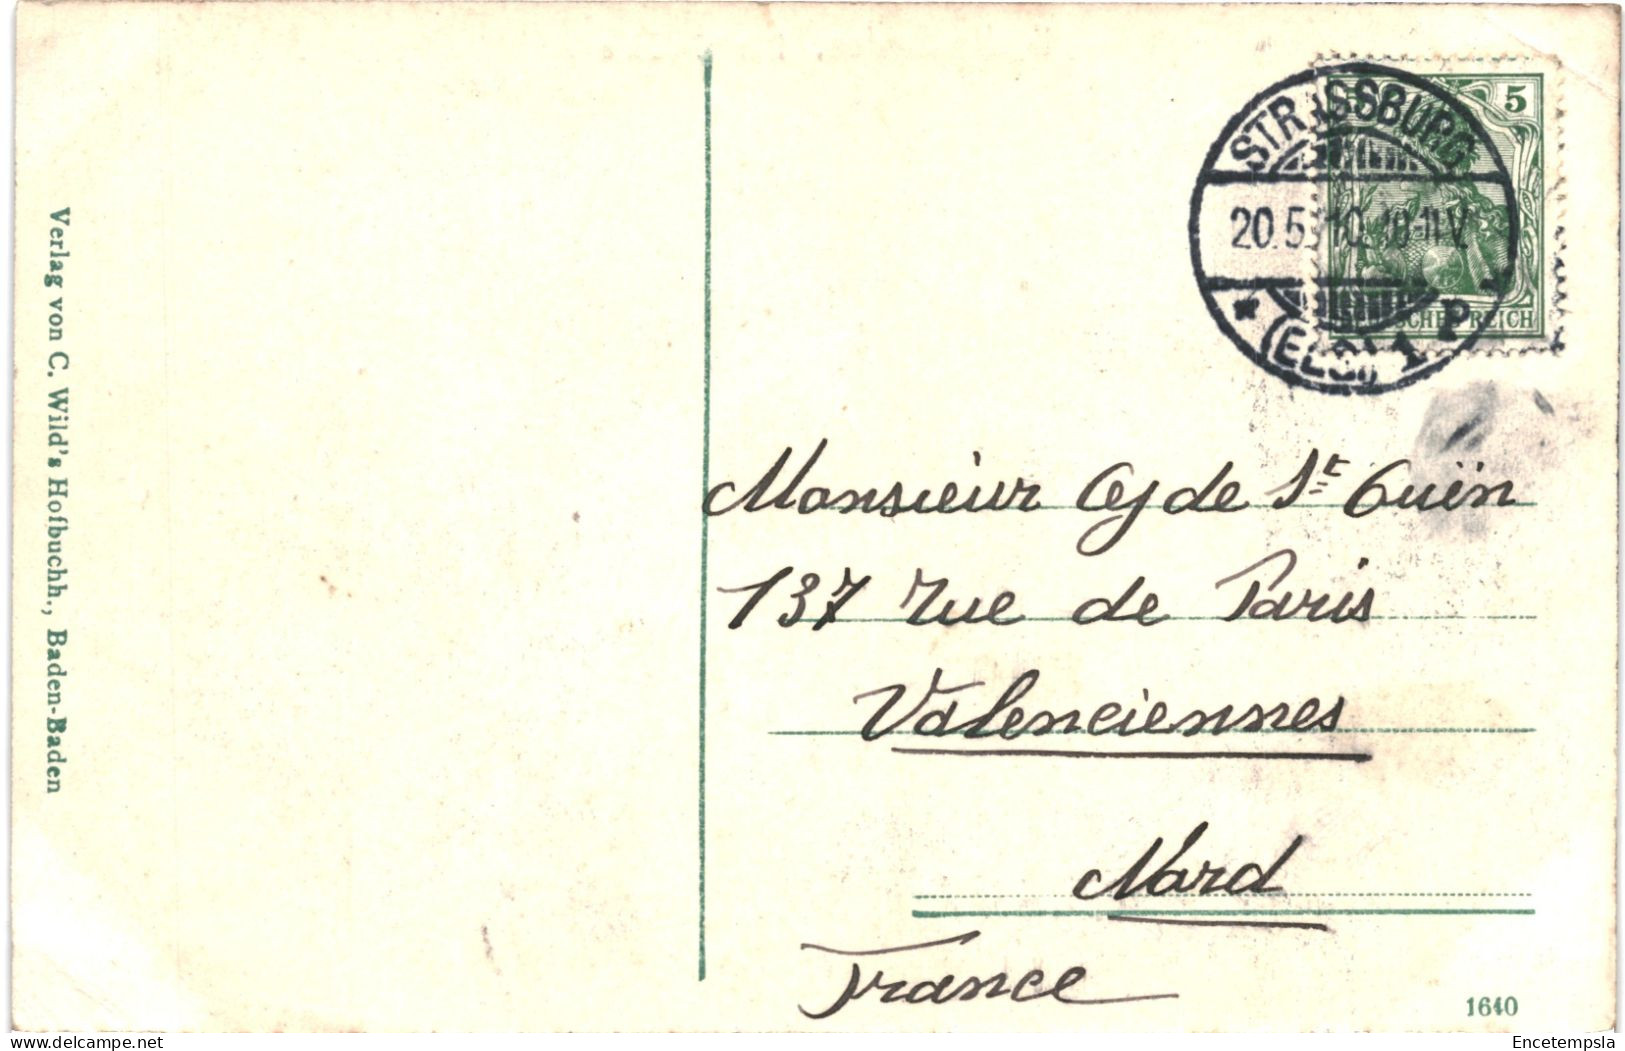 Verlag von C. Wild's Hofbuchh., Baden-Baden
5
STRASSBURG
20.5.10.10-11V.
* (ELS.) 1 P *
DEUTSCHES REICH
Monsieur de St
137 Rue de Paris
Valenciennes
Nord
France
1640
delcampe.net
Encetempsla